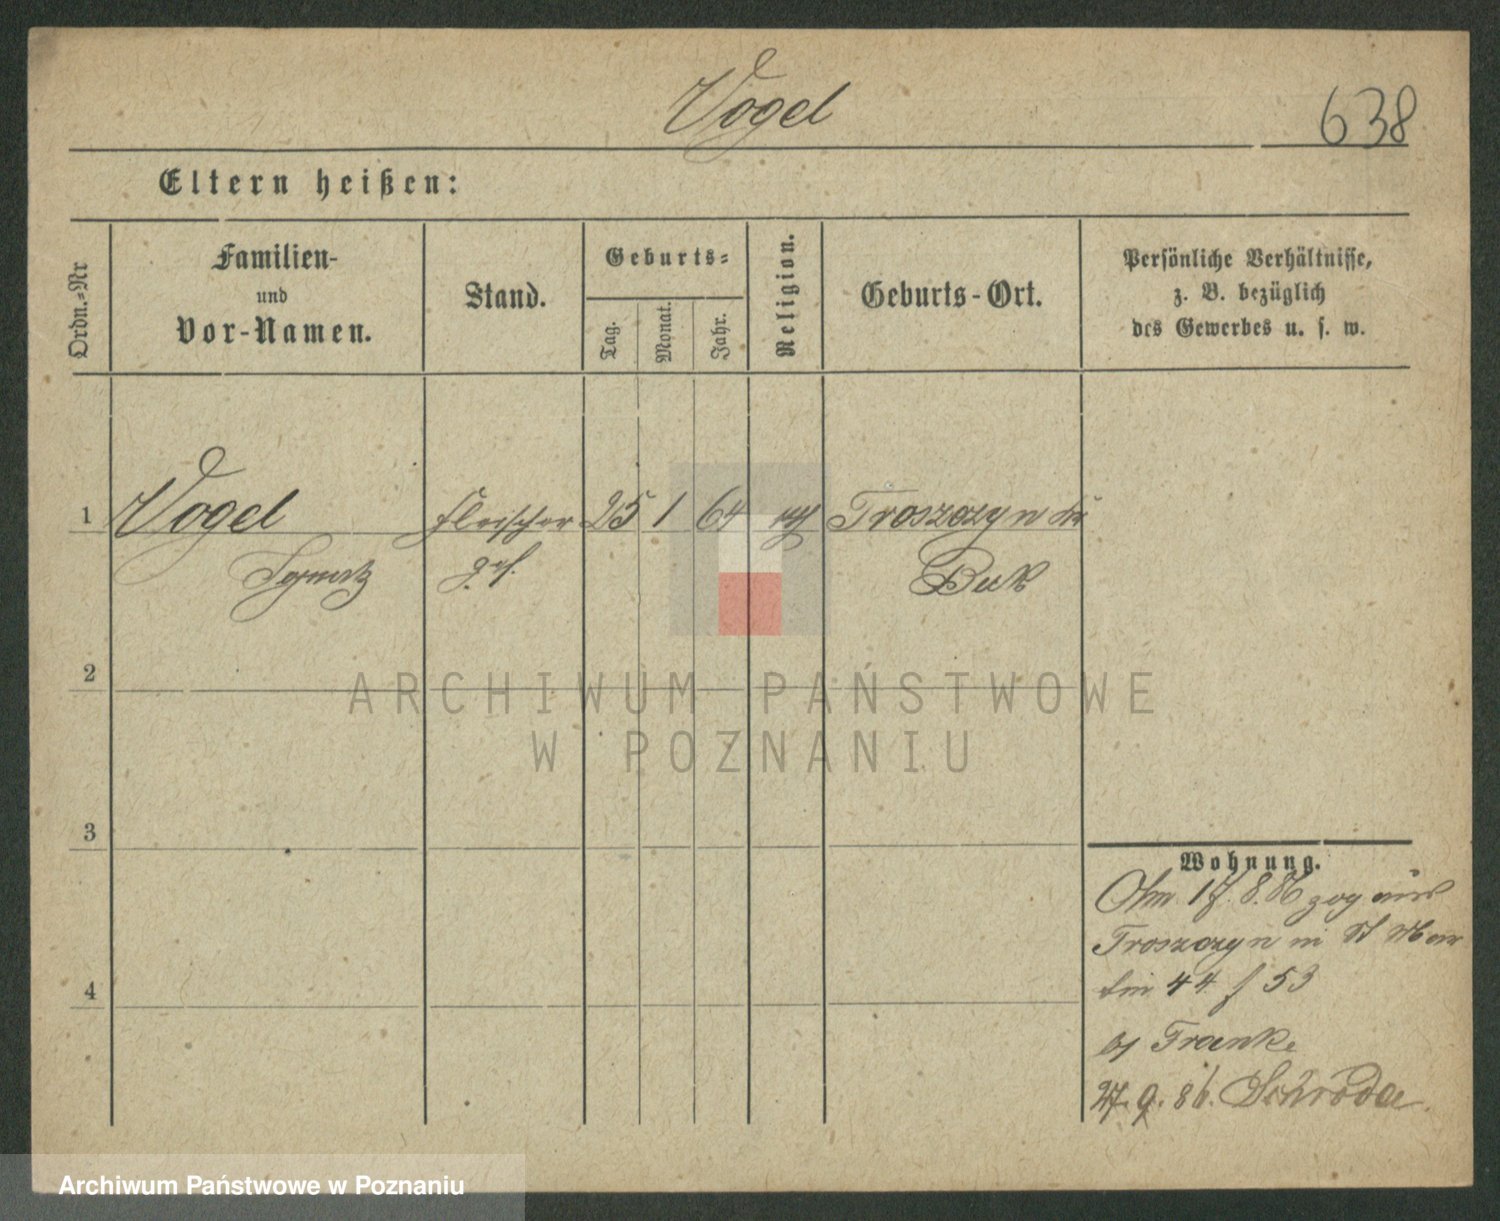 Vogel
638
Eltern heißen:
Ordn.=Nr
Familien-
und
Vor-Namen.
Stand.
Geburts=
Tag.
Monat.
Jahr.
Religion.
Geburts-Ort.
Persönliche Verhältnisse,
z. B. bezüglich
des Gewerbes u. s. w.
1 Vogel Fleischer 25 1 64 Troszczyn Kr
Ignatz ges. Buk
2
ARCHIWUM PAŃSTWOWE
W POZNANIU
3
Wohnung.
17.8.86 zog aus
Troszczyn in St Mar
tin 44 f 53
4
bj Franke
27.9.86. Schroda
Archiwum Państwowe w Poznaniu